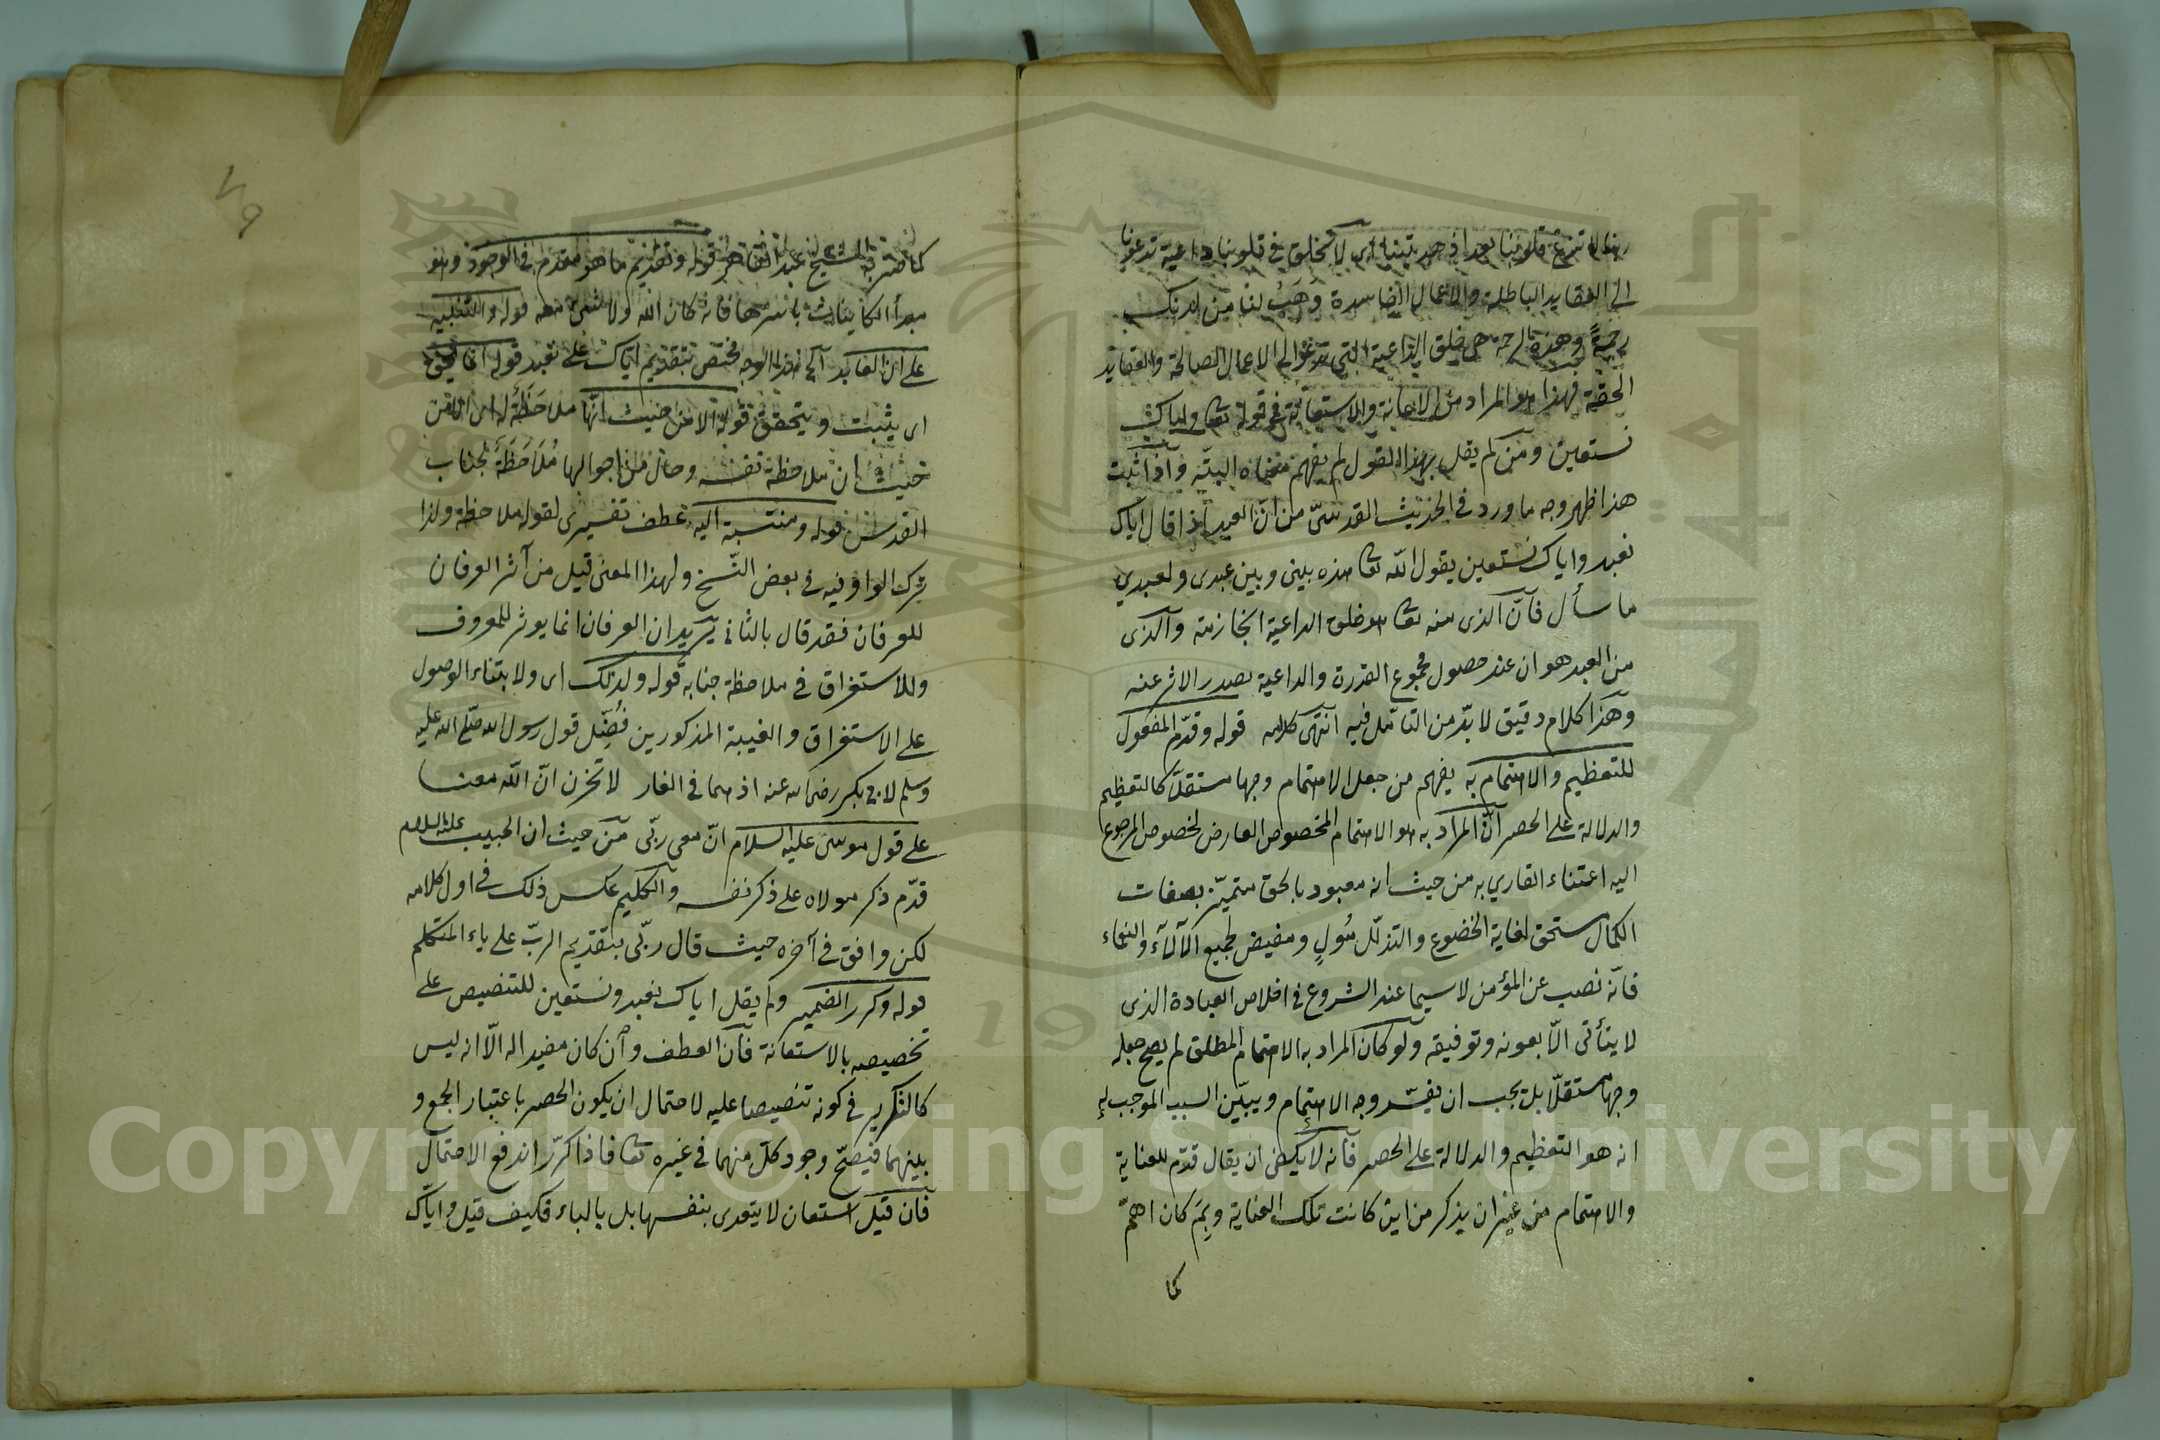 ربنا لا تزغ قلوبنا بعد اذ هديتنا اى لا تخلق فى قلوبنا داعية تدعونا
الى العقايد الباطلة والاعمال الفاسدة وَهَبْ لنا من لدنك
رحمةً وهذه الرحمة هى خلق الداعية التى تدعو الى الاعمال الصالحة والعقايد
الحقة فهذا هو المراد من الاعانة والاستعانة فى قوله تعا واياك
نستعين ومن لم يقل بهذا القول لم يفهم معناه البتّه واذا ثبت
هذا ظهر وجه ما ورد فى الحديث القدسىّ من ان العبد اذا قال اياك
نعبد واياك نستعين يقول اللّه تعا هذه بينى وبين عبدى ولعبدي
ما سأل فانّ الذى منه تعا هو خلق الداعية الجازمة والذى
من العبد هو ان عند حصول مجموع القدرة والداعية يصدر الاثر عنه
وهذا كلام دقيق لا بدّ من التأمّل فيه انتهى كلامه قوله وقدّم المفعول
للتعظيم والاهتمام به يفهم من جعل الاهتمام وجها مستقلا كالتعظيم
والدلالة على الحصر انّ المراد به هو الاهتمام المخصوص العارض لخصوص المرجوع
اليه اعتناء القاري به من حيث انه معبود بالحق متميّز بصفات
الكمال مستحق لغاية الخضوع والتذلّل مُولٍ ومفيض لجميع الآلآء والنعماء
فانّه نصب عن المؤمن لا سيما عند الشروع فى اخلاص العبادة الذى
لا يتأتى الّا بعونه وتوفيقه ولو كان المراد به الاهتمام المطلق لم يصح جعله
وجها مستقلّا بل يجب ان يفسّر وجه الاهتمام ويبيّن السبب الموجب له
انه هو التعظيم والدلالة على الحصر فانه لا يكفى ان يقال قدّم للعناية
والاهتمام من غير ان يذكر من اين كانت تلك العناية وبِمَ كان اهمّ
كما
٧٩
كما صرّح به الشيخ عبد القاهر قوله وتقديم ما هو مقدم فى الوجود وهو
مبدأ الكاينات باسرها فانه كان اللّه ولا شىء معه قوله والتنبيه
على ان العابد آلخ هذا الوجه مختص بتقديم اياك على نعبد قوله انما يحق
اى يثبت ويتحقق قوله الا من حيث انّها ملاحَظَةٌ له اى الا من
حيث ان ملاحظة نفسه وحال من احوالها مُلَاحَظَةٌ لجناب
القدس قوله ومنتسبة اليه عطف تفسيرى لقوله ملاحظة ولذا
ترك الواو فيه فى بعض النسخ ولهذا المعنى قيل من آثر العرفان
للعرفان فقد قال بالثانى يريد ان العرفان انما يوثر للمعروف
وللاستغراق فى ملاحظة جنابه قوله ولذلك اى ولابتناء الوصول
على الاستغراق والغيبة المذكورين فُضّل قول رسول اللّه صلّى اللّه عليه
وسلم لابى بكر رضى اللّه عنه اذ هما فى الغار لا تحزن انّ اللّه معنا
على قول موسى عليه السلام انّ معى ربّى من حيث ان الحبيب عليه السلام
قدّم ذكر مولاه على ذكر نفسه والكليم عكس ذلك فى اول كلامه
لكن وافق فى آخره حيث قال ربّى بتقديم الربّ على ياء المتكلم
قوله وكرر الضمير ولم يقل اياك نعبد ونستعين للتنصيص على
تخصيصه بالاستعانة فانّ العطف وان كان مفيدا له الّا انه ليس
كالتكرير فى كونه تنصيصا عليه لاحتمال ان يكون الحصر باعتبار الجمع و
بينهما فيصحّ وجود كلّ منهما فى غيره تعا فاذا كرّر اندفع الاحتمال
فان قيل استعان لا يتعدى بنفسها بل بالباء فكيف قيل واياك
Copyright © King Saud University